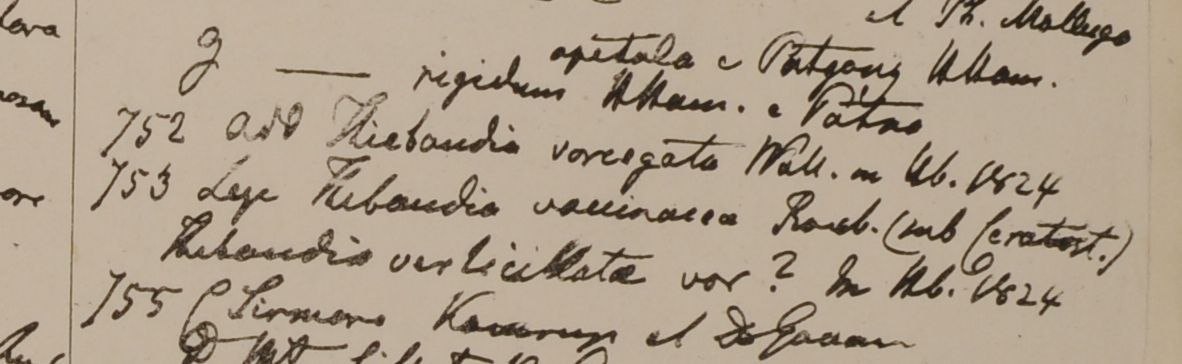 lora
et Th. Mollugo
apetala e Patgong HHam.
g — rigidum HHam. e Patna
752 add Thiebaudia variegata Wall. in Hb. 1824
753 Lege Thibaudia vacciniacea Roxb. (sub Ceratost.)
Thibaudia verticillata var? In Hb. 1824
755 Sirmore Kamrup et